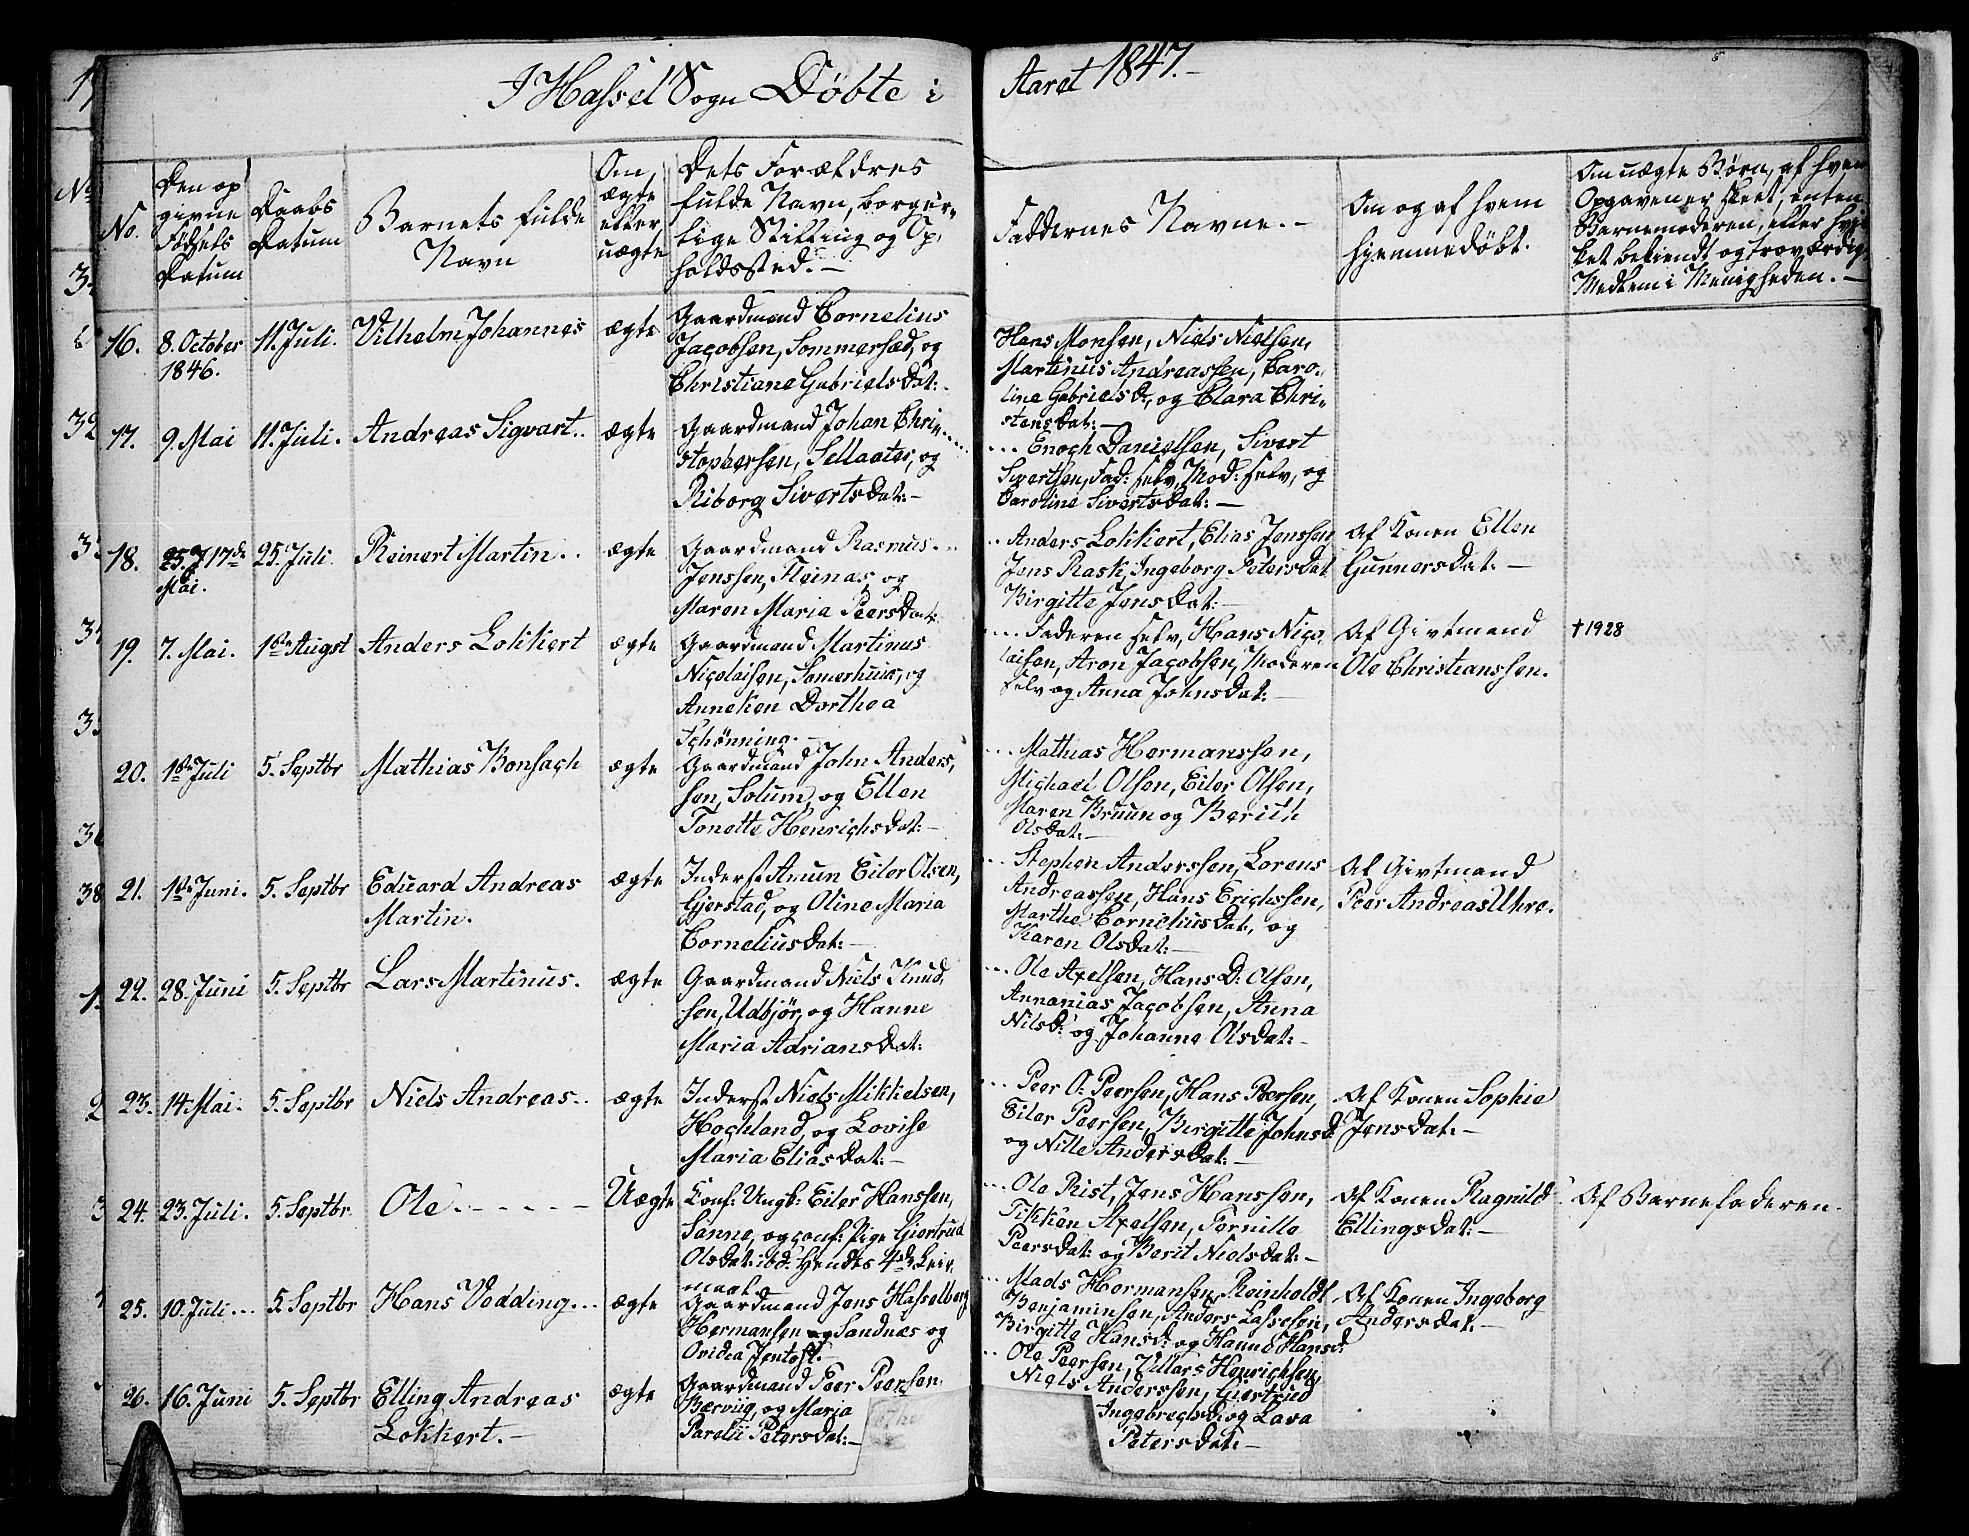 I Hassel Sogn Døbte i Aaret 1847.-
No.
Den op
givne
Fødsels
Datum
Daabs
Datum
Barnets fulde
Navn
Om
ægte
eller
uægte
Dets Forældres
fulde Navn, borger-
lige Stilling og Op-
holdssted.-
Faddernes Navne.-
Om og af hvem
hjemmedøbt.
Om uægte Børn, af hvem
Opgaven er skeet, enten
Barnemoderen, eller hvil
ket bekiendt og troværdigt
Medlem i Menigheden.-
16. 8. October 11. Juli. Vilhelm Johannes ægte
1846.
Gaardmand Cornelius
Jacobsen, Sommersæd, og
Christiane Gabrielsdat:-
Hans Monsen, Niels Nielsen,
Martinus Andreassen, Caro-
line Gabrielsd, og Clara Chri-
stensdat:-
17. 9. Mai 11. Juli. Andreas Sigvart.. ægte
Gaardmand Johan Chri-....
stophersen, Sellaater, og
Riborg Sivertsdat:-
... Enoch Danielsen, Sivert
Sivertsen, Fad: selv, Mod: selv, og
Caroline Sivertsdat:-
18. 25. J 17de 25. Juli. Reinert Martin.. ægte
Mai.
Gaardmand Rasmus...
Jenssen, Fleinas, og
Maren Maria Peersdat.
.. Anders Lokkert, Elias Jenssen
Jens Rask, Ingeborg Petersdat
Birgitte Jensdat:-
Af Konen Ellen
Gunnersdat:-
19. 7. Mai. 1ste Augst Anders Lokkert ægte
Gaardmand Martinus
Nicolaisen, Somerhuus, og
Anneken Dorthea
Schønning.-
... Faderen selv, Hans Nico-
laisen, Aron Jacobsen, Moderen
selv og Anna Johnsdat:-
Af Givtmand
Ole Christianssen.
† 1928
20. 1ste Juli 5. Septbr Mathias Bonsach ægte
Gaardmand John Anders,
sen, Solum, og Ellen
Tonette Henrichsdat:-
... Mathias Hermanssen,
Michael Olsen, Eiler Olsen,
Maren Bruun og Berith
Olsdat:-
21. 1ste Juni. 5. Septbr Eduard Andreas ægte
Martin.
Inderst Amun Eiler Olsen,
Gjerstad, og Oline Maria
Corneliusdat:-
... Stephen Anderssen, Lorens
Andreassen, Hans Erichssen,
Marthe Corneliusdat, og
Karen Olsdat:-
Af Givtmand
Peer Andreas Uhre.
22. 28. Juni 5. Septbr Lars Martinus. ægte
Gaardmand Niels Knud,
sen, Udbjør, og Hanne
Maria Adriansdat:
... Ole Axelsen, Hans D: Olsen,
Annanias Jacobsen, Anna
Nilsd: og Johanne Olsdat:-
23. 14 Mai. 5. Septbr Niels Andreas.. ægte
Inderst Niels Mikkelsen,
Hockland, og Lovise
Maria Eliasdat:-
... Peer O: Peersen, Hans Peersen,
Eiler Peersen, Birgitte Johnsd
og Nille Andersdat:-
Af Konen Sophie
Jensdat:-
24. 23. Juli. 5. Septbr Ole.----- Uægte
Konf: Ungk: Eiler Hanssen,
Sanne, og conf: Pige Giertrud
Olsdat: ibd: Hendes 4de Leier
maal
... Ole Rist, Jens Hanssen,
Tikken Axelsen, Pernille
Peersdat: og Berit Nielsdat:-
Af Konen Ragnild
Ellingsdat:-
Af Barnefaderen.
25. 10. Juli... 5. Septbr Hans Vedding... ægte
Gaardmand Jens Hasselberg
Hermansen og Sandnæs og
Ovidea Jentoft.-
... Mads Hermansen, Reinholdt
Benjaminsen, Anders Lassesen,
Birgitte Hansd: og Hanne Hansd:
Af Konen Ingeborg
Andersdat:-
26. 16. Juni 5. Septbr Elling Andreas ægte
Lokkert.-
Gaardmand Peer Peersen
Børviig, og Maria
Parelii Petersdat:-
.. Ole Peersen, Villars Henrichsen,
Niels Anderssen, Giertrud
Ingebregtsd: og Lava
Petersdat:-